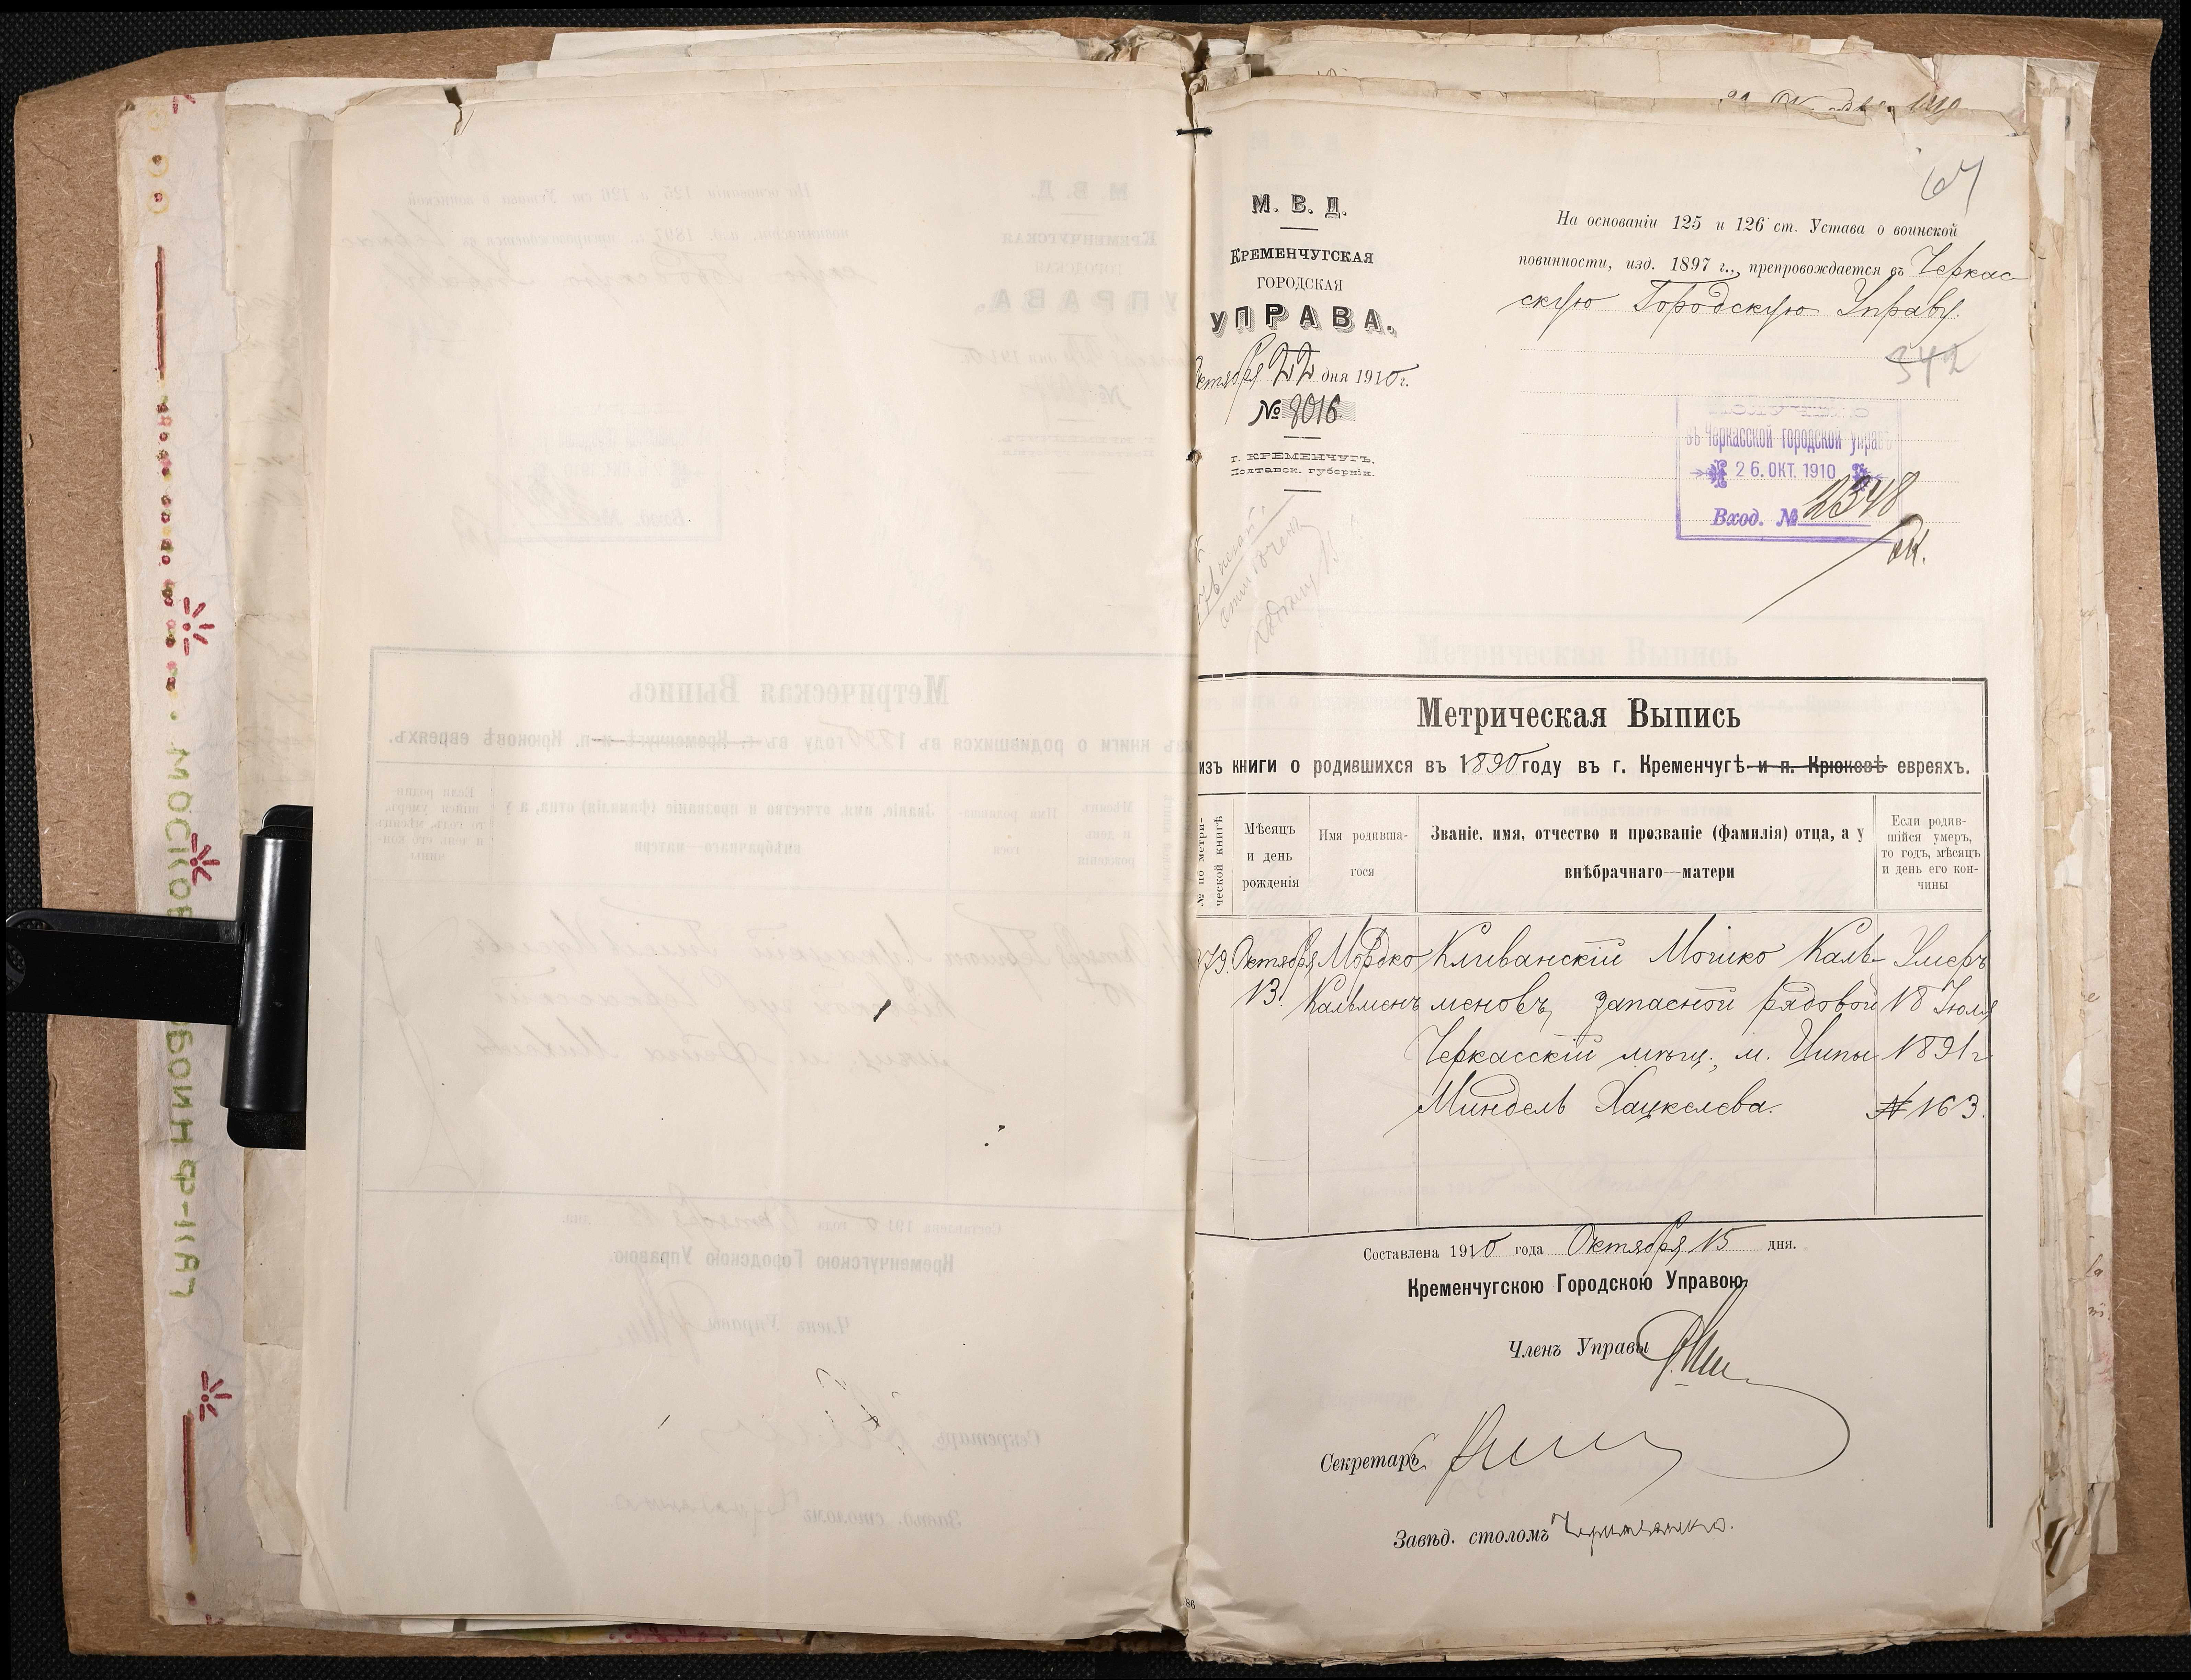 67
М. В. Д.
КРЕМЕНЧУГСКАЯ
ГОРОДСКАЯ
УПРАВА.
Октября 22 дня 1910 г.
№ 8016.
г. КРЕМЕНЧУГЪ,
Полтавск. губерніи.
На основаніи 125 и 126 ст. Устава о воинской
повинности, изд. 1897 г., препровождается въ Черкас
скую Городскую Управу.
342
въ Черкасской городской управѣ
26. ОКТ. 1910
Вход. № 2348
Метрическая Выпись
изъ книги о родившихся въ 1890 году въ г. Кременчугѣ и п. Крюковѣ евреяхъ.
№ по метри-
ческой книгѣ
Мѣсяцъ
и день
рожденія
Имя родивша-
гося
Званіе, имя, отчество и прозваніе (фамилія) отца, а у
внѣбрачнаго—матери
Если родив-
шійся умеръ,
то годъ, мѣсяцъ
и день его кон-
чины
79. Октября Мордко Кливанскій Мошко Каль- Умеръ
13. Кальменъ меновъ, запасной рядовой 18 Іюля
Черкасскій мѣщ., м. Ципы 1891 г
Миндель Хацкелева. № 163.
Составлена 1910 года Октября 15 дня.
Кременчугскою Городскою Управою
Членъ Управы
Секретарь
Завѣд. столомъ
86
МОСКОВ